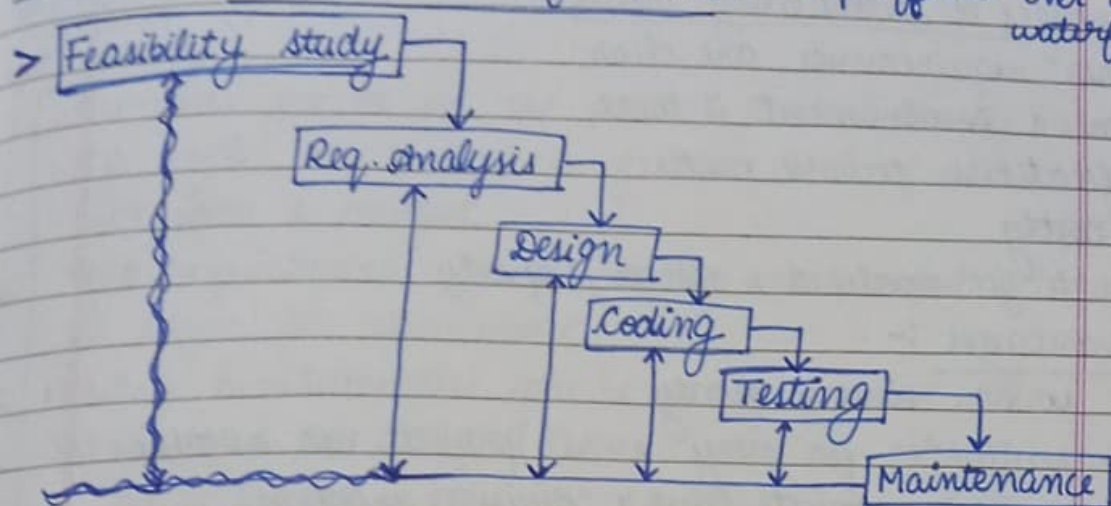 over
> Feasibility study
Req. Analysis
Design
Coding
Testing
Maintenance